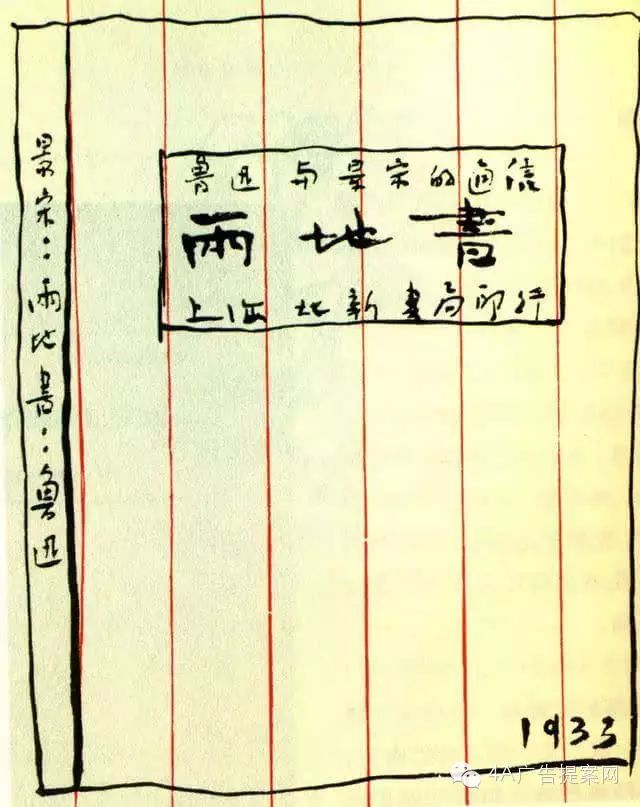 魯迅与景宋的通信
兩地書
上海北新書局印行
景宋：兩地書：魯迅
1933
4A广告提案网